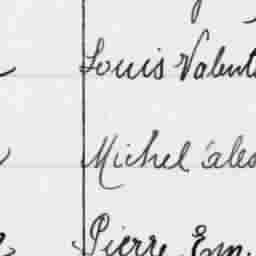 Louis Valent
Michel ales
Pierre Em.